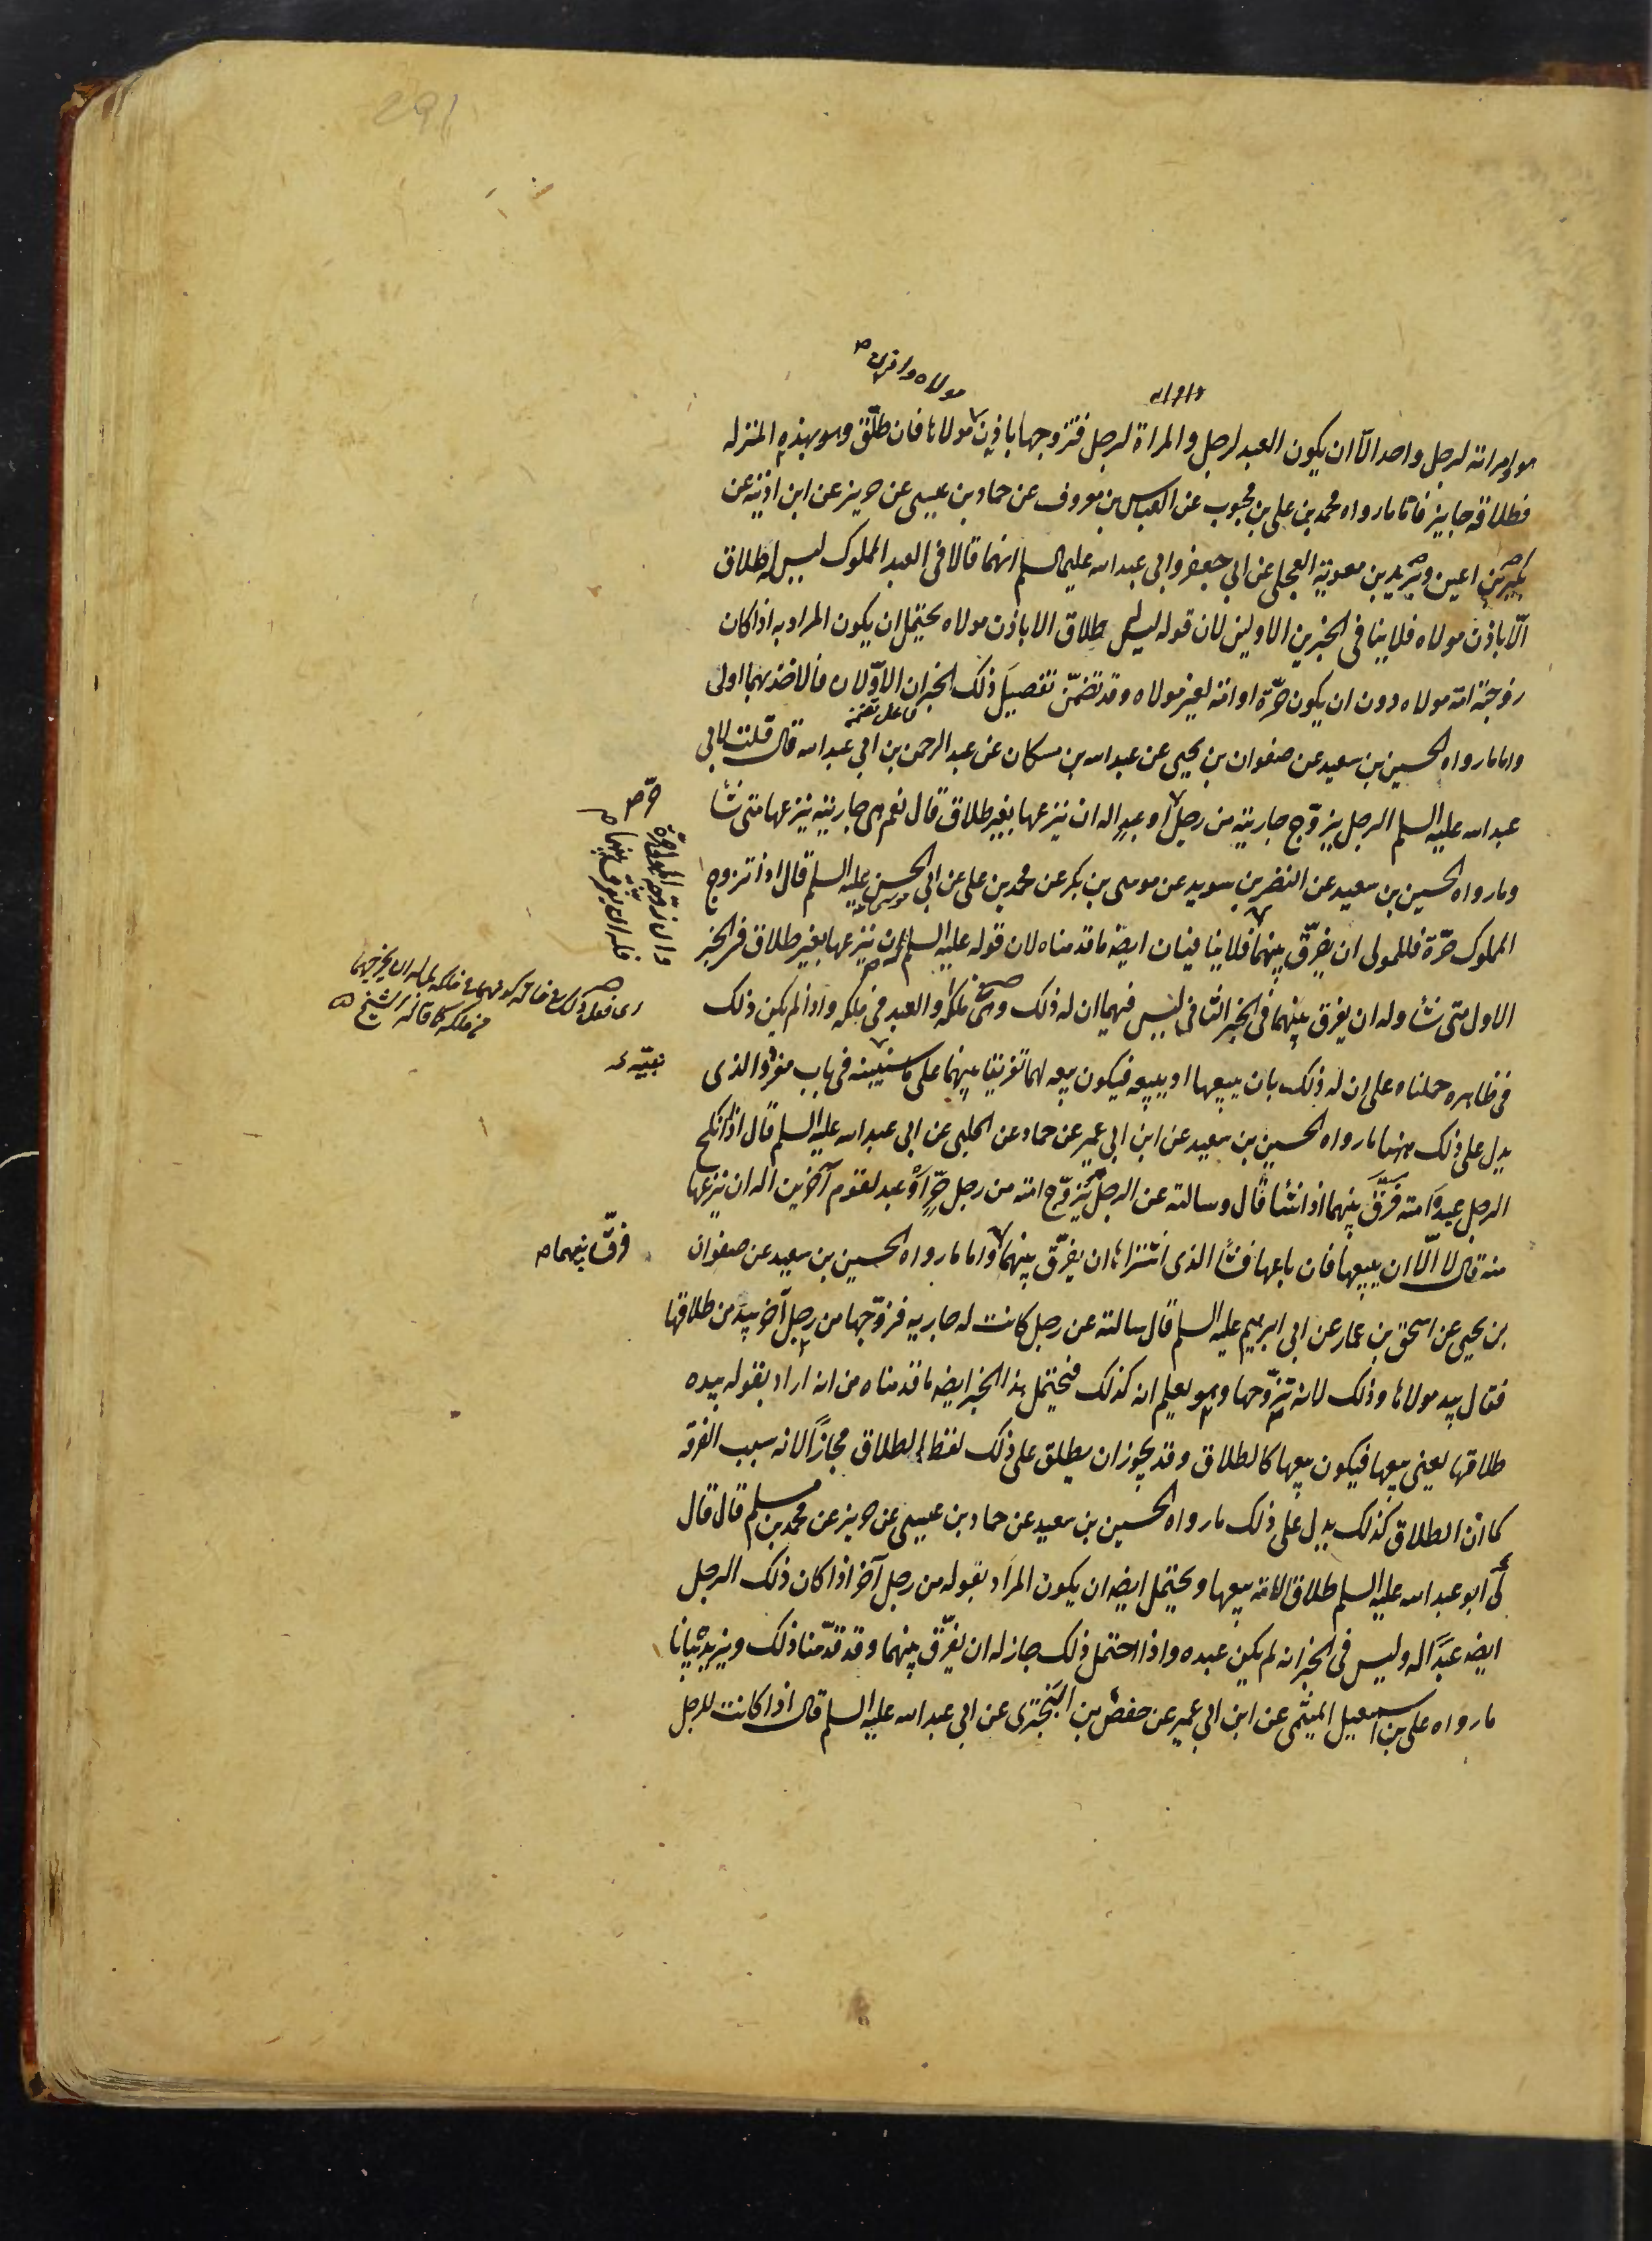 مولاه واذن
هو وامراته لرجل واحد الّا ان يكون العبد لرجل والمراة لرجل فتزوجها باذن مولاها فان طلّق وهو بهذه المنزله
فطلاقه جايز فاما ما رواه محمد بن علي بن محبوب عن العباس بن معروف عن حماد بن عيسى عن حريز عن ابن اذينه عن
بكير بن اعين وبريد بن معوية العجلي عن ابي جعفر وابي عبد الله عليهما السلم انهما قالا في العبد المملوك ليس له طلاق
الّا باذن مولاه فلا ينافى الخبرين الاولين لان قوله ليس له طلاق الا باذن مولاه يحتمل ان يكون المراد به اذا كان
زوجته امة مولاه دون ان يكون حرّة او امة لغير مولاه وقد تضمّن تفصيل ذلك الخبران الاوّلان فالاخذ بهما اولى
فاعل تضمنه
واما ما رواه الحسين بن سعيد عن صفوان بن يحيى عن عبد الله بن مسكان عن عبد الرحمن بن ابي عبد الله قال قلت لابي
عبد الله عليه السلم الرجل يزوّج جاريته من رجل حر او عبد اله ان ينزعها بغير طلاق قال نعم هي جاريته ينزعها متى شا
وما رواه الحسين بن سعيد عن النضر بن سويد عن موسى بن بكر عن محمد بن علي عن ابي الحسن موسى عليه السلم قال اذا تزوج
المملوك حرّة فللمولى ان يفرّق بينهما فلا ينافيان ايضا ما قدمناه لان قوله عليه السلم له ان ينزعها بغير طلاق في الخبر
الاول متى شا وله ان يفرق بينهما في الخبر الثاني ليس فيهما ان له ذلك وهى في ملكه والعبد في ملكه واذا لم يكن ذلك
في ظاهره حملناه على ان له ذلك بان يبيعها او يبيعه فيكون بيعه لهما تفريقا بينهما على ما سنبينه في باب مفرد والذي
يدل على ذلك ههنا ما رواه الحسين بن سعيد عن ابن ابي عمير عن حماد عن الحلبي عن ابي عبد الله عليه السلم قال اذا انكح
الرجل عبده امته فرّق بينهما اذا شا قال وسالته عن الرجل يزوّج امته من رجل حرّ او عبد لقوم آخرين اله ان ينزعها
منه قال لا الّا ان يبيعها فان باعها فشا الذي اشتراها ان يفرّق بينهما واما ما رواه الحسين بن سعيد عن صفوان
بن يحيى عن اسحق بن عمار عن ابي ابرهيم عليه السلم قال سالته عن رجل كانت له جاريه فزوّجها من رجل آخر بيد من طلاقها
فقال بيد مولاها وذلك لانه تزوّجها وهو يعلم انه كذلك فيحتمل هذا الخبر ايضا ما قدمناه من انه اراد بقوله بيده
طلاقها يعني بيعها فيكون بيعها كالطلاق وقد يجوز ان يطلق على ذلك لفظ الطلاق مجازا لانه سبب الفرقة
كما انّ الطلاق كذلك يدل على ذلك ما رواه الحسين بن سعيد عن حماد بن عيسى عن حريز عن محمد بن مسلم قال قال
لي ابو عبد الله عليه السلم طلاق الامة بيعها ويحتمل ايضا ان يكون المراد بقوله من رجل آخر اذا كان ذلك الرجل
ايضا عبدا له وليس في الخبر انه لم يكن عبده واذا احتمل ذلك جاز له ان يفرّق بينهما وقد قدّمنا ذلك ويزيده بيانا
ما رواه علي بن اسمعيل الميثمي عن ابن ابي عمير عن حفص بن البختري عن ابي عبد الله عليه السلم قال اذا كانت للرجل
فرّق بينهما